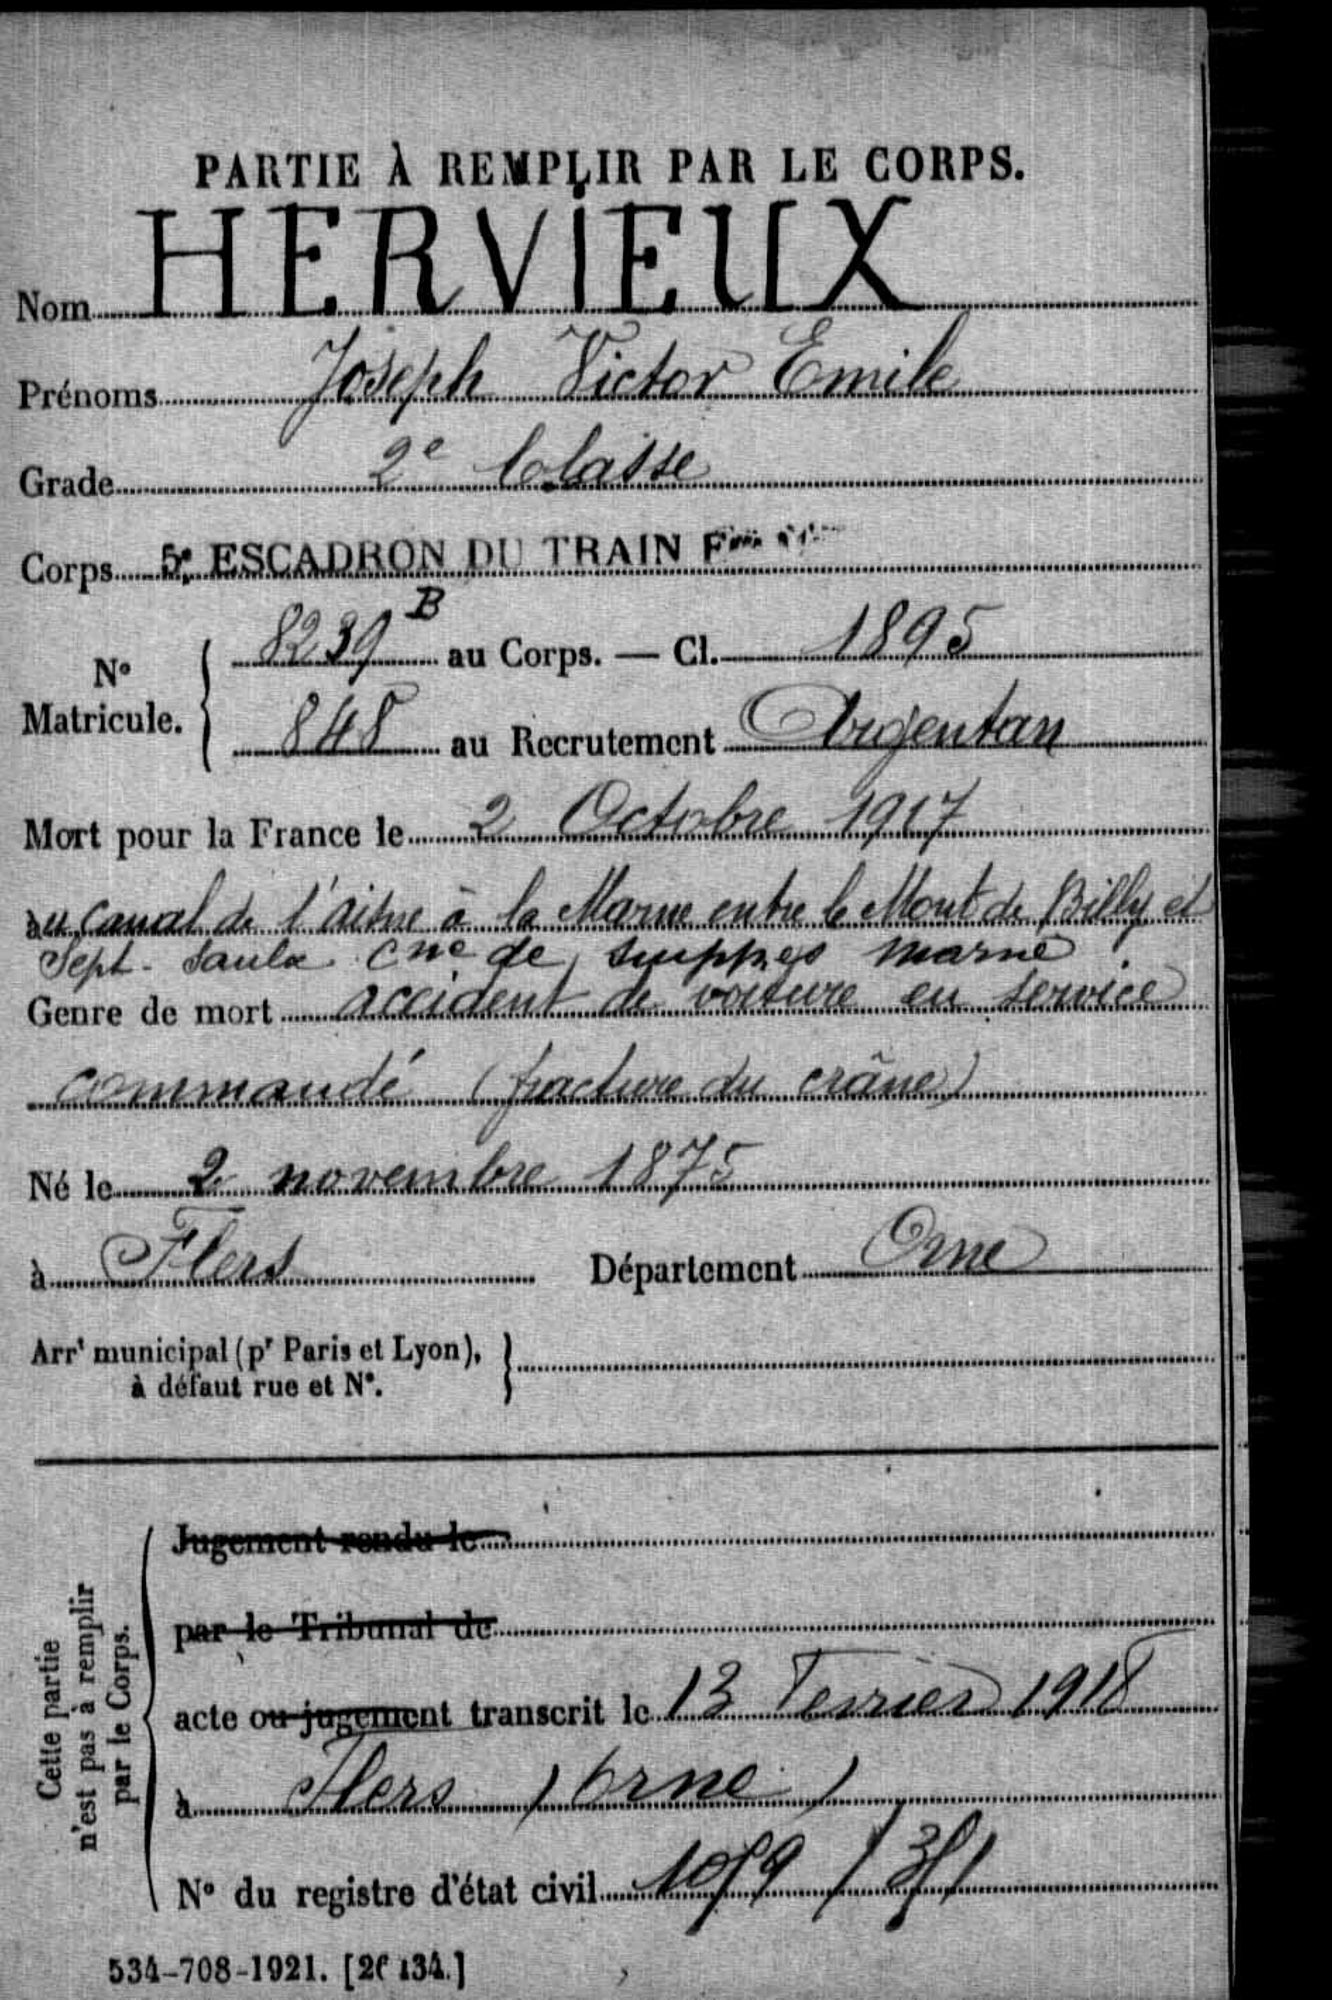 PARTIE À REMPLIR PAR LE CORPS.
Nom HERVIEUX
Prénoms Joseph Victor Emile
Grade 2e Classe
Corps 5e ESCADRON DU TRAIN
No Matricule. { 8239 B au Corps. — Cl. 1895
848 au Recrutement Argentan
Mort pour la France le 2 Octobre 1917
au canal de l'aisne à la Marne entre le Mont de Billy et
Sept-Saulx Cne de Suippes Marne
Genre de mort accident de voiture en service
commandé (fracture du crâne)
Né le 2 novembre 1875
à Flers Département Orne
Arrt municipal (pr Paris et Lyon), à défaut rue et No. }
Cette partie n'est pas à remplir par le Corps.
Jugement rendu le
par le Tribunal de
acte ou jugement transcrit le 13 Fevrier 1918
à Flers (Orne)
No du registre d'état civil
534-708-1921. [26134.]